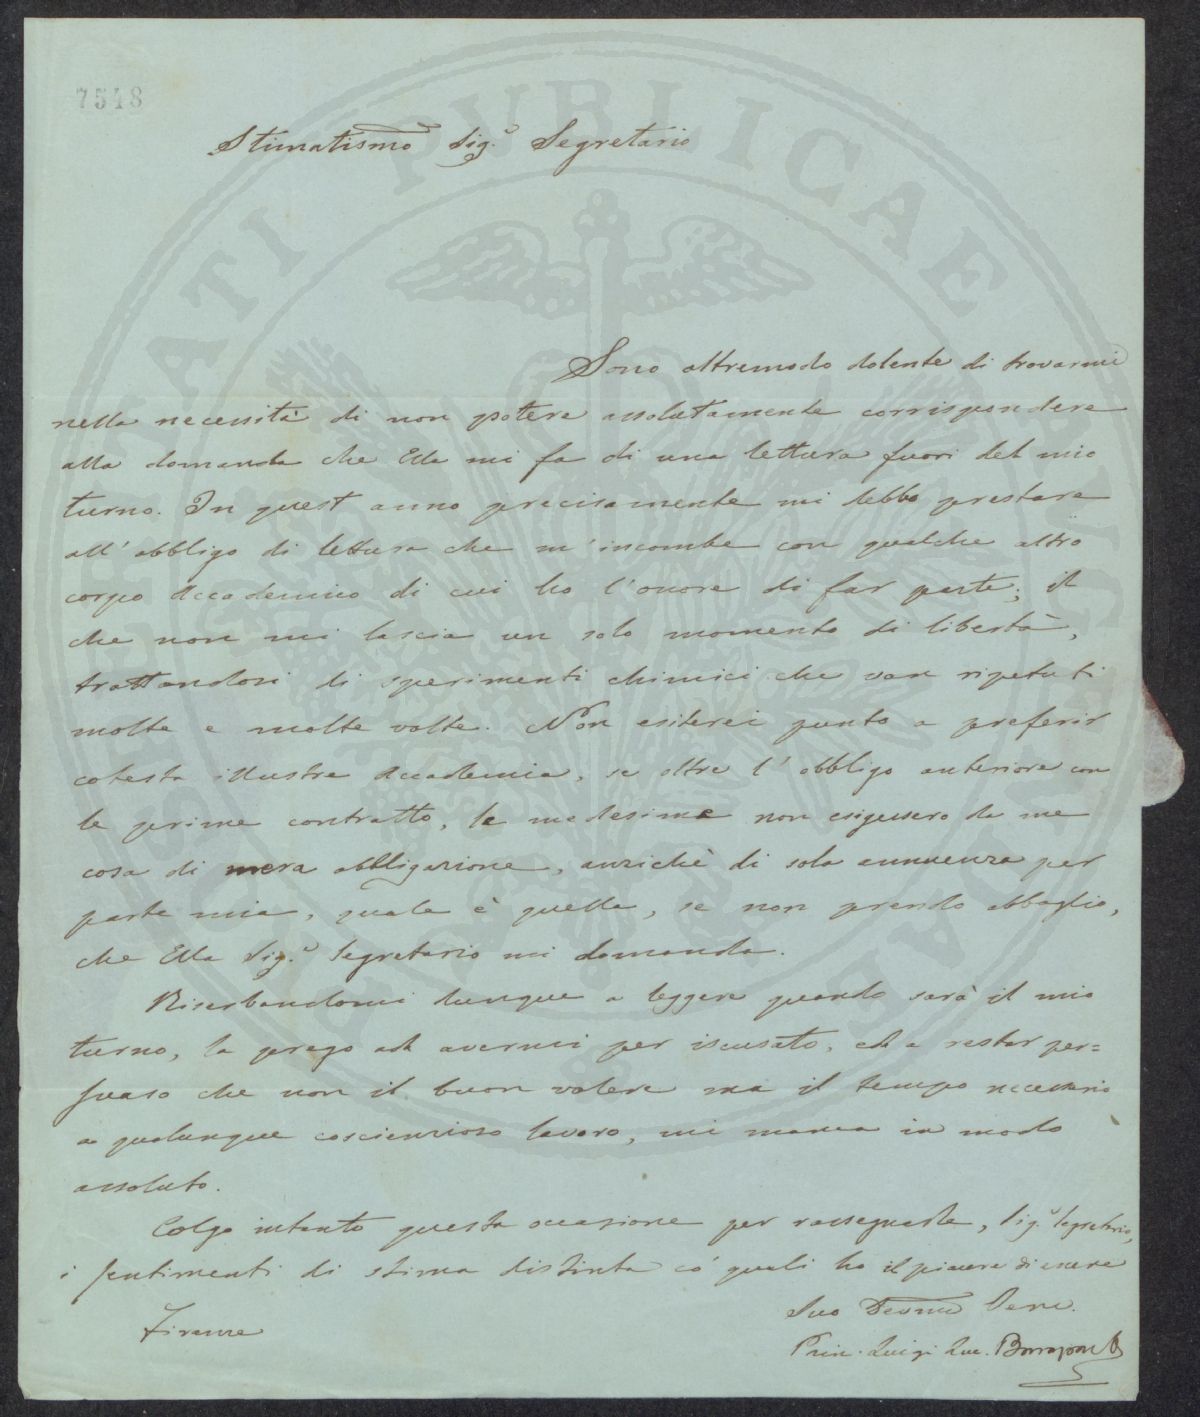 7548
Stimatismo Sig.r Segretario
Sono oltremodo dolente di trovarmi
nella necessità di non potere assolutamente corrispondere
alla domanda che Ella mi fa di una lettura fuori del mio
turno. In quest anno precisamente mi debbo prestare
all'obbligo di lettura che m'incombe con qualche altro
corpo Accademico di cui ho l'onore di far parte; il
che non mi lascia un solo momento di libertà,
trattandosi di sperimenti chimici che van ripetuti
molte e molte volte. Non esiterei punto a preferir
cotesta illustre Accademia, se oltre l'obbligo anteriore con
le prime contratto, le medesime non esigessero da me
cosa di mera obbligazione, anzichè di sola annuenza per
parte mia, quale è quella, se non prendo abbaglio,
che Ella Sig.r Segretario mi domanda.
Riserbandomi dunque a leggere quando sarà il mio
turno, la prego ad avermi per iscusato, ed a restar per=
suaso che non il buon volere ma il tempo necessario
a qualunque coscienzioso lavoro, mi manca in modo
assoluto.
Colgo intanto questa occasione per rassegnarle, Sig.r Segretario,
i sentimenti di stima distinta co' quali ho il piacere di essere
Suo Devmo Serv.
Firenze
Prin. Luigi Luc. Bonaparte
SENATI PUBLICAE